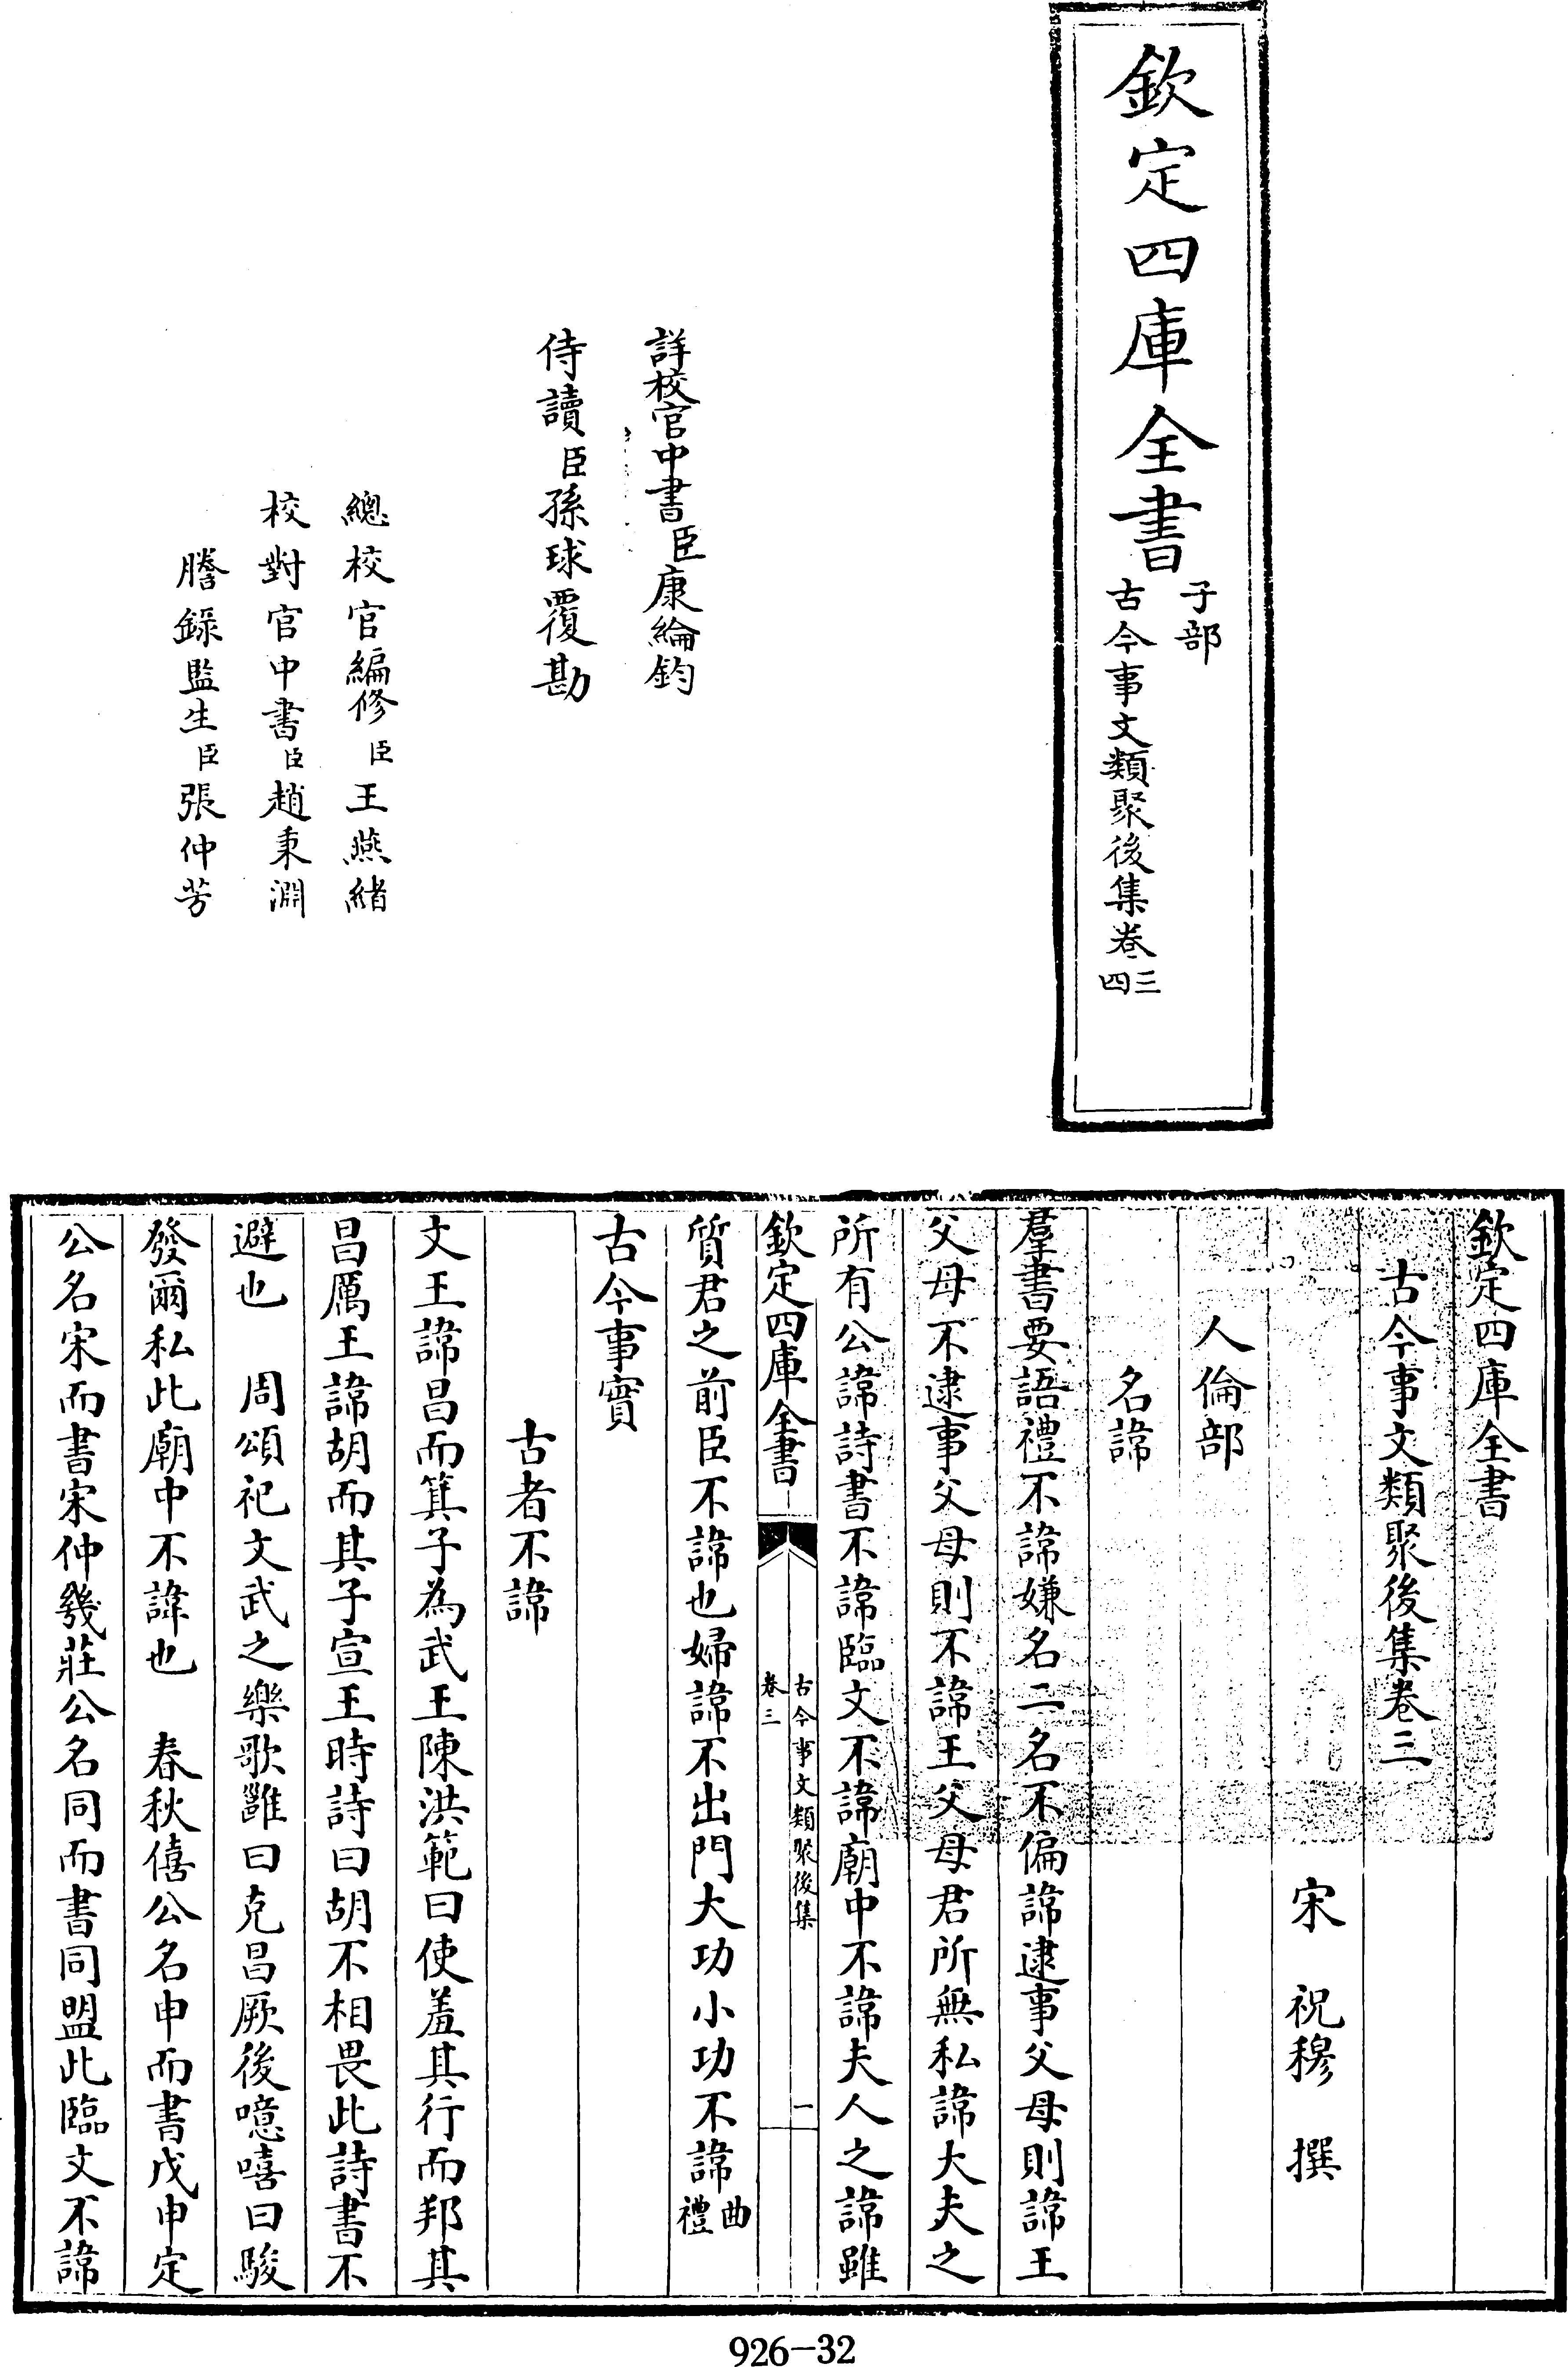 欽定四庫全書
子部
古今事文類聚後集卷三四
詳校官中書臣康綸鈞
侍讀臣孫球覆勘
總校官編修臣王燕緒
校對官中書臣趙秉淵
謄錄監生臣張仲芳
欽定四庫全書
古今事文類聚後集卷三
宋 祝穆 撰
人倫部
名諱
羣書要語禮不諱嫌名二名不偏諱逮事父母則諱王
父母不逮事父母則不諱王父母君所無私諱大夫之
所有公諱詩書不諱臨文不諱廟中不諱夫人之諱雖
欽定四庫全書
古今事文類聚後集
卷三
一
質君之前臣不諱也婦諱不出門大功小功不諱曲禮
古今事實
古者不諱
文王諱昌而箕子為武王陳洪範曰使羞其行而邦其
昌厲王諱胡而其子宣王時詩曰胡不相畏此詩書不
避也 周頌祀文武之樂歌雝曰克昌厥後噫嘻曰駿
發爾私此廟中不諱也 春秋僖公名申而書戊申定
公名宋而書宋仲幾莊公名同而書同盟此臨文不諱
926-32